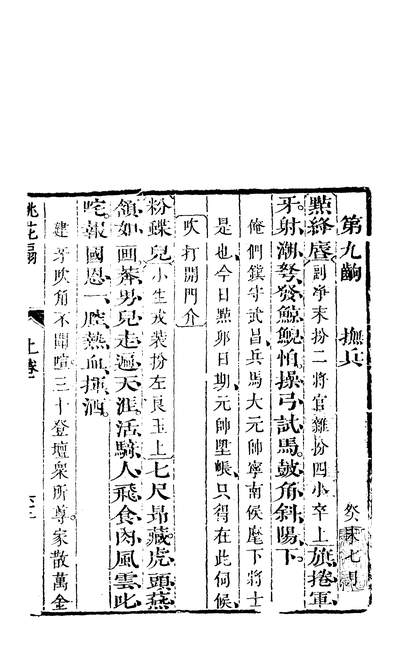 第九齣　撫兵　癸未七月
點絳脣副淨末扮二將官雜扮四小卒上旗捲軍
牙射潮弩發鯨鯢怕操弓試馬鼓角斜陽下
俺們鎮守武昌兵馬大元帥寧南候麾下將士
是也今日點卯日期元帥陞帳只得在此伺候
吹打開門介
粉蝶兒小生戎裝扮左良玉上七尺昂藏虎頭燕
頷如畫莽男兒走遍天涯活騎人飛食肉風雲叱
咤報國恩一腔熱血揮洒
建牙吹角不聞喧三十登壇衆所尊家散萬金
桃花扇　上卷